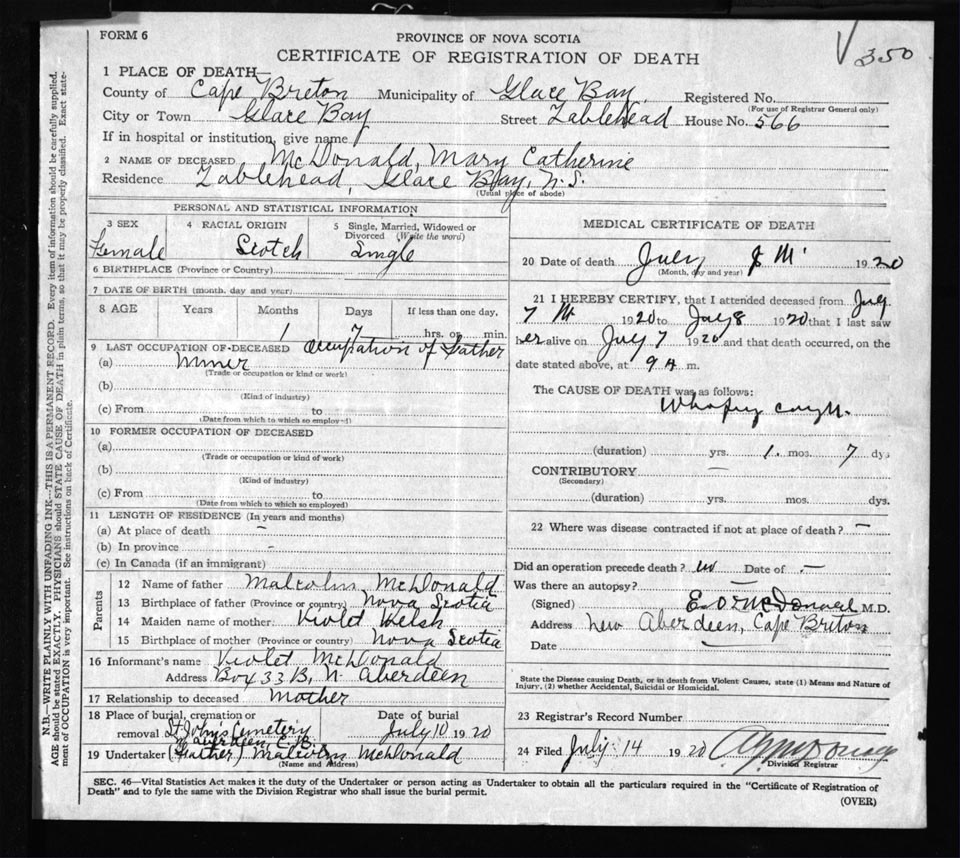 FORM 6
350
PROVINCE OF NOVA SCOTIA
CERTIFICATE OF REGISTRATION OF DEATH
1 PLACE OF DEATH—
County of Cape Breton Municipality of Glace Bay Registered No.
(For use of Registrar General only)
City or Town Glace Bay Street Tablehead House No. 566
If in hospital or institution, give name
2 NAME OF DECEASED McDonald, Mary Catherine
Residence Tablehead, Glace Bay, N.S.
(Usual place of abode)
PERSONAL AND STATISTICAL INFORMATION
3 SEX Female
4 RACIAL ORIGIN Scotch
5 Single, Married, Widowed or Divorced (Write the word) Single
6 BIRTHPLACE (Province or Country)
7 DATE OF BIRTH (month, day and year)
8 AGE Years Months Days If less than one day,
1 7 hrs. or min.
9 LAST OCCUPATION OF DECEASED Occupation of Father
(a) Miner
(Trade or occupation or kind or work)
(b)
(Kind of industry)
(c) From to
(Date from which to which so employed)
10 FORMER OCCUPATION OF DECEASED
(a)
(Trade or occupation or kind of work)
(b)
(Kind of industry)
(c) From to
(Date from which to which so employed)
11 LENGTH OF RESIDENCE (In years and months)
(a) At place of death –
(b) In province –
(c) In Canada (if an immigrant)
Parents
12 Name of father Malcolm McDonald
13 Birthplace of father (Province or country) Nova Scotia
14 Maiden name of mother Violet Welsh
15 Birthplace of mother (Province or country) Nova Scotia
16 Informant's name Violet McDonald
Address Box 33 B, N. Aberdeen
17 Relationship to deceased Mother
18 Place of burial, cremation or removal St John's Cemetery
N Aberdeen C.B.
Date of burial
July 10 1920
19 Undertaker (Father) Malcolm McDonald
(Name and Address)
MEDICAL CERTIFICATE OF DEATH
20 Date of death July 1920
(Month, day and year)
21 I HEREBY CERTIFY, that I attended deceased from July
7 1920 to July 8 1920 that I last saw
her alive on July 7 1920 and that death occurred, on the
date stated above, at 9 A m.
The CAUSE OF DEATH was as follows:
Whooping cough.
(duration) yrs. 1. mos. 7 dys
CONTRIBUTORY –
(Secondary)
(duration) yrs. mos. dys.
22 Where was disease contracted if not at place of death? –
Did an operation precede death? no Date of –
Was there an autopsy? –
(Signed) McDonald M.D.
Address New Aberdeen, Cape Briton
Date
State the Disease causing Death, or in death from Violent Causes, state (1) Means and Nature of
Injury, (2) whether Accidental, Suicidal or Homicidal.
23 Registrar's Record Number
24 Filed July 14 1920
Division Registrar
SEC. 46—Vital Statistics Act makes it the duty of the Undertaker or person acting as Undertaker to obtain all the particulars required in the "Certificate of Registration of
Death" and to fyle the same with the Division Registrar who shall issue the burial permit.
(OVER)
N.B.—WRITE PLAINLY WITH UNFADING INK—THIS IS A PERMANENT RECORD. Every item of information should be carefully supplied.
AGE should be stated EXACTLY. PHYSICIANS should STATE CAUSE OF DEATH in plain terms, so that it may be properly classified. Exact state-
ment of OCCUPATION is very important. See instructions on back of Certificate.